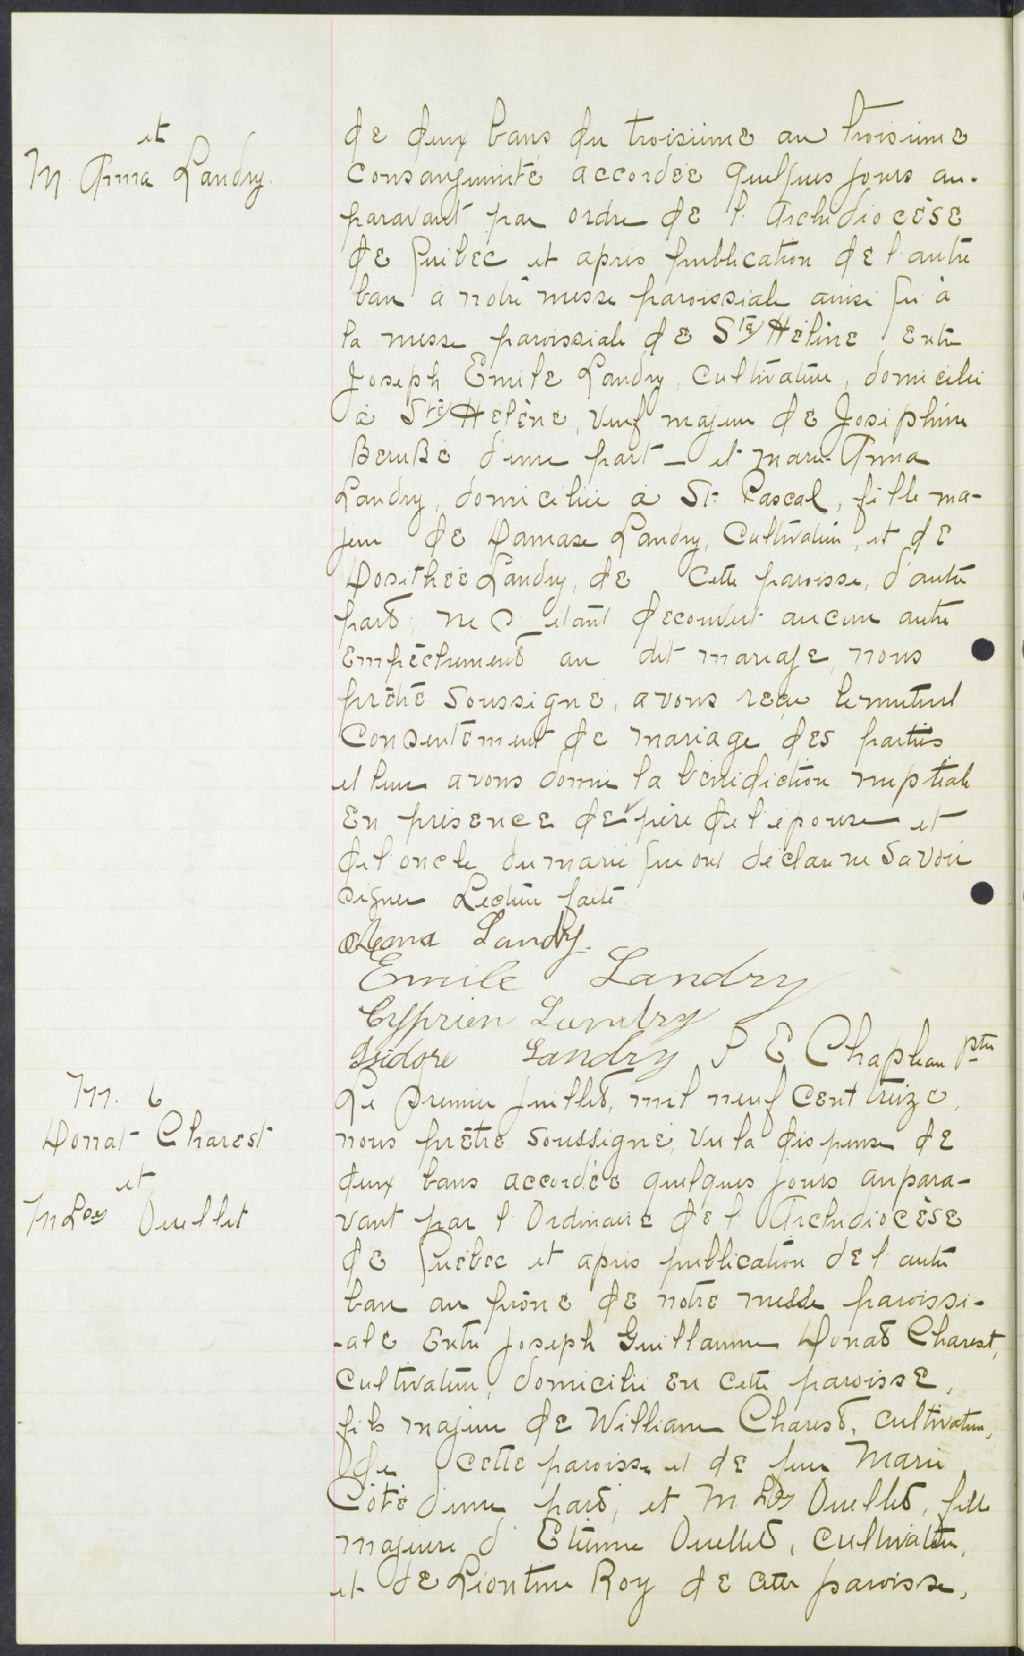 et
M. Anna Landry.
de deux bans du troisième au troisième
consanguinité accordée quelques jours au-
paravant par ordre de l'Archidiocèse
de Québec et après publication de l'autre
ban à notre messe paroissiale ainsi qu'à
la messe paroissiale de Ste Hélène entre
Joseph Emile Landry, cultivateur, domicilié
à Ste Hélène, veuf majeur de Joséphine
Berubé d'une part - et marie Anna
Landry, domiciliée à St. Pascal, fille ma-
jeure de Damase Landry, Cultivateur, et de
Dosithée Landry, de cette paroisse, d'autre
part; ne s'étant découvert aucun autre
empêchement au dit mariage, nous
prêtre soussigné, avons reçu le mutuel
consentement de mariage des parties
et leur avons donné la bénédiction nuptiale
en présence de père de l'épouse et
de l'oncle du marié qui ont déclaré ne savoir
signer. Lecture faite
Landry.
Emile Landry
Cyprien Landry
Isidore Landry J. E Chapleau ptre
M. 6
Donat Charest
et
M Lse Ouellet
Le Premier Juillet, mil neuf cent treize,
nous prêtre soussigné, vu la dispense de
deux bans accordée quelques jours aupara-
vant par l'Ordinaire de l'Archidiocèse
de Québec et après publication de l'autre
ban au prône de notre messe paroissi-
-ale entre Joseph Guillaume Donat Charest,
cultivateur, domicilié en cette paroisse,
fils majeur de William Charest, cultivateur,
de cette paroisse et de feue Marie
Côté d'une part; et M Ls Ouellet, fille
majeure d'Etienne Ouellet, cultivateur,
et de Léontine Roy de cette paroisse,